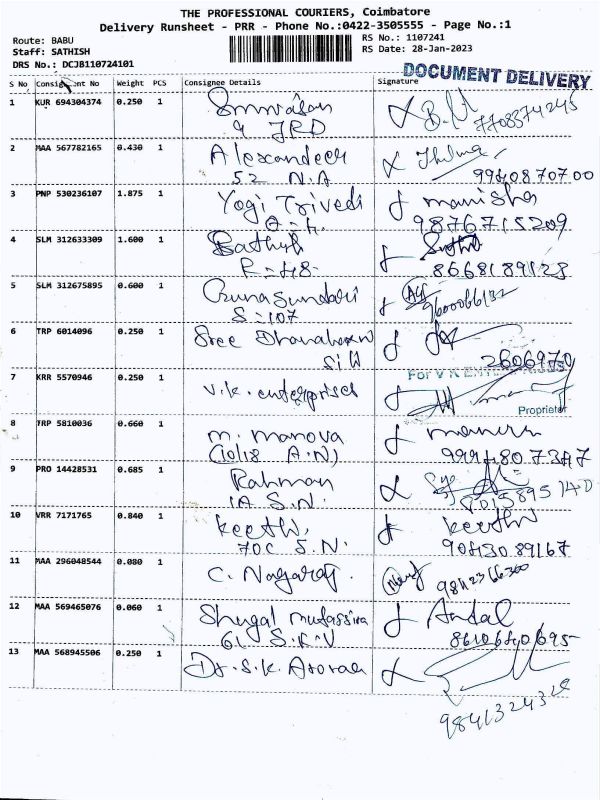 THE PROFESSIONAL COURIERS, Coimbatore
Delivery Runsheet - PRR - Phone No.:0422-3505555 - Page No.:1
Route: BABU RS No.: 1107241
Staff: SATHISH RS Date: 28-Jan-2023
DRS No.: DCJB110724101
DOCUMENT DELIVERY
S No Consignment No Weight PCS Consignee Details Signature
1 KUR 694304374 0.250 1
9 JRD 7708374245
2 MAA 567782165 0.430 1 Alexandeer
52 N.A 9940870700
3 PNP 530236107 1.875 1 Yogi Trivedi manisha
9876715209
4 SLM 312633309 1.600 1
8668189128
5 SLM 312675895 0.600 1 Gunasundari
S=107 9600066132
6 TRP 6014096 0.250 1 Sree
2606970
7 KRR 5570946 0.250 1 V.K. enterprises For V K ENTERPRISES
Proprietor
8 TRP 5810036 0.660 1 M. Manova
(10/18 A.N) 9994807347
9 PRO 14428531 0.685 1 Rahman
1A S.N.
10 VRR 7171765 0.840 1 Keerth keerth
70C S.N. 9043089167
11 MAA 296048544 0.080 1 C. Nagaraj.
9842366300
12 MAA 569465076 0.060 1 Shugal Andal
61 S.K.V 8610640695
13 MAA 568945506 0.250 1 Dr. S.K.
9841324328